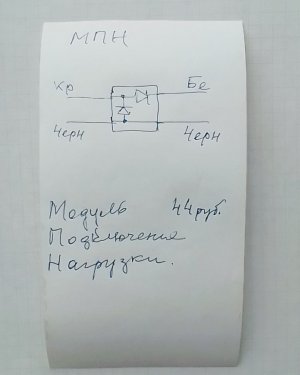 МПН
Кр Бе
Черн Черн
Модуль 44руб.
Подключения
Нагрузки.